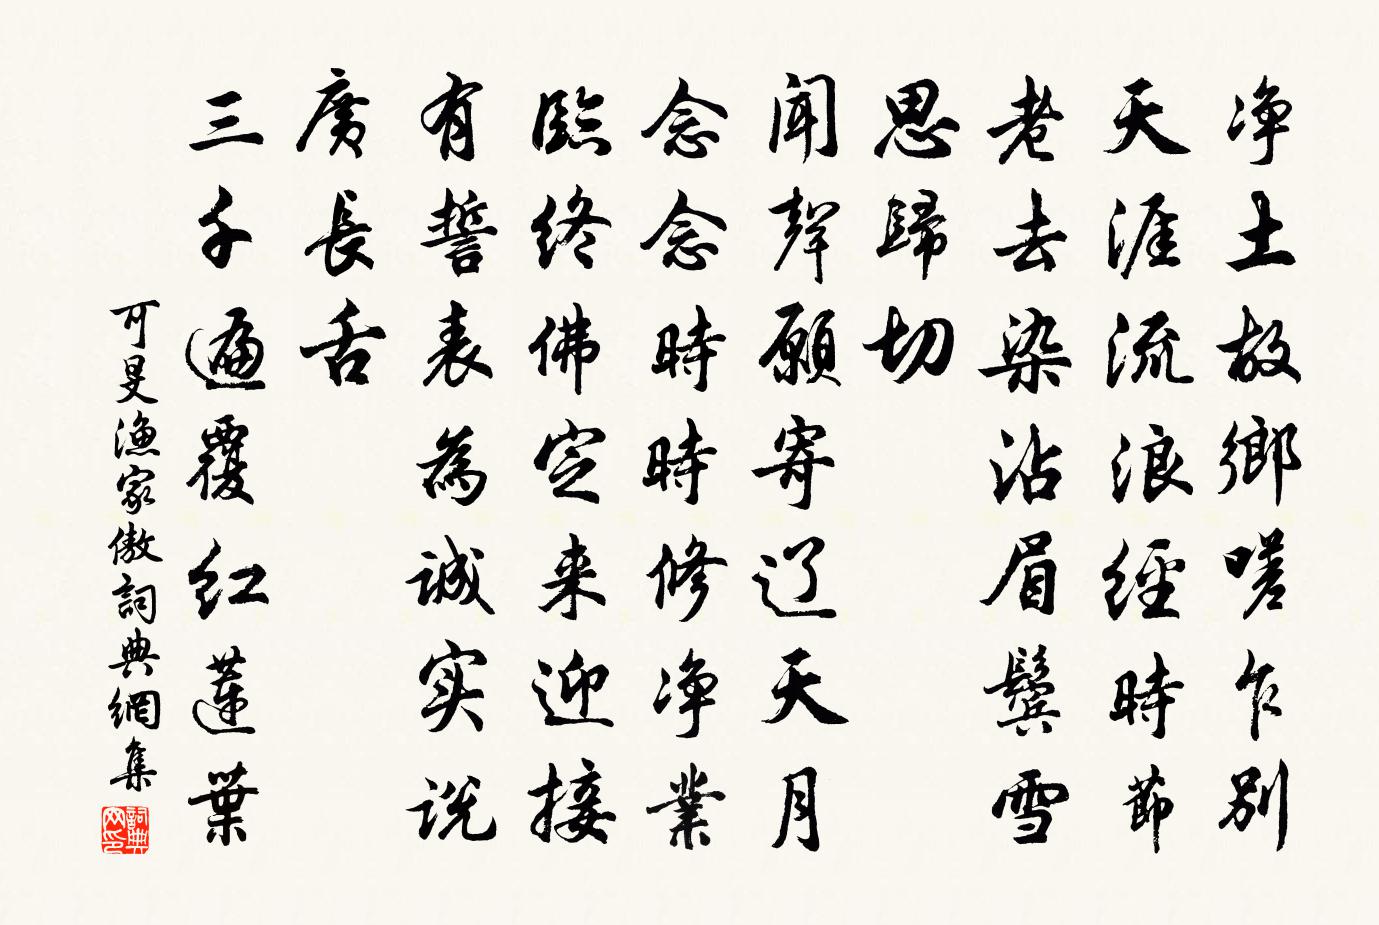 净土故鄉嗟乍別
天涯流浪經時節
老去染沾眉鬓雪
思歸切
闻聲願寄辽天月
念念時時修净業
臨终佛定来迎接
有誓表為誠实说
廣長舌
三千遍覆红蓮葉
可旻漁家傲詞典網集
詞典
网印